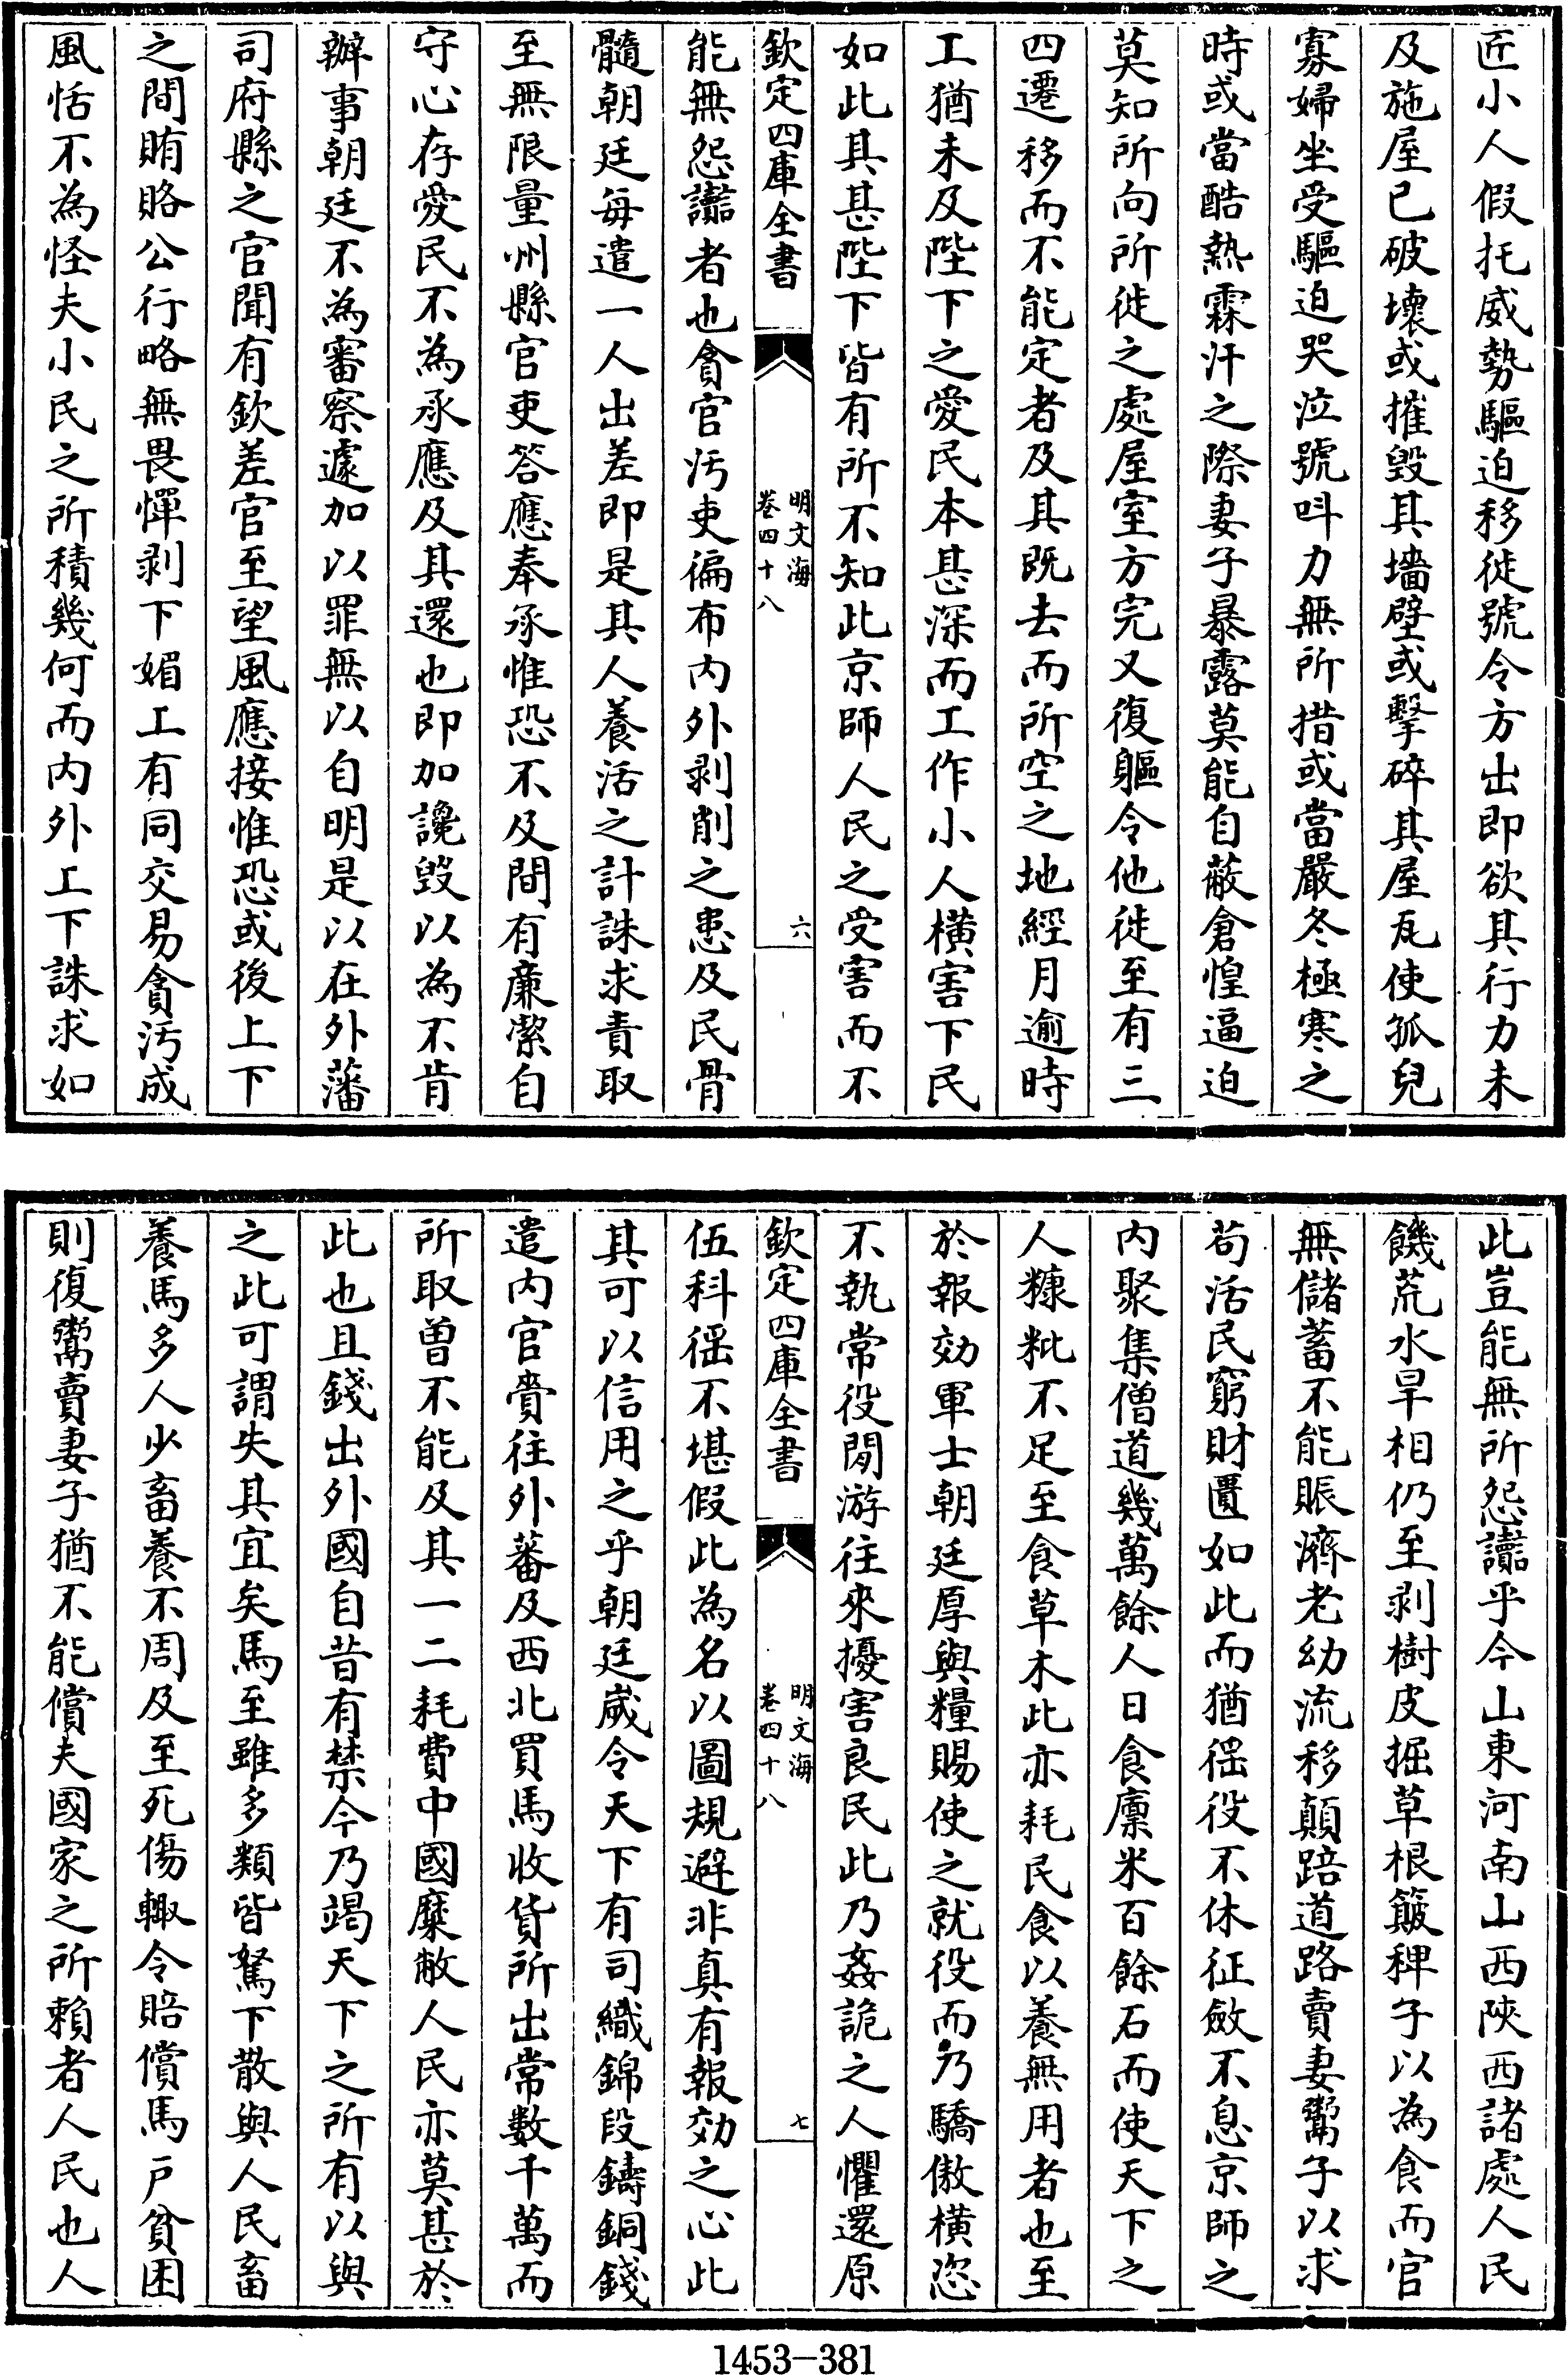 匠小人假托威勢驅迫移徙號令方出即欲其行力未
及施屋已破壞或摧毀其墻壁或擊碎其屋瓦使孤兒
寡婦坐受驅迫哭泣號呌力無所措或當嚴冬極寒之
時或當酷熱霖汗之際妻子暴露莫能自蔽倉惶逼迫
莫知所向所徙之處屋室方完又復軀令他徙至有三
四遷移而不能定者及其既去而所空之地經月逾時
工猶未及陛下之愛民本甚深而工作小人橫害下民
如此其甚陛下皆有所不知此京師人民之受害而不
欽定四庫全書
明文海
卷四十八
六
能無怨讟者也貪官汚吏徧布内外剥削之患及民骨
髓朝廷每遣一人出差即是其人養活之計誅求責取
至無限量州縣官吏答應奉承惟恐不及間有廉潔自
守心存愛民不為承應及其還也即加讒毀以為不肯
辦事朝廷不為審察遽加以罪無以自明是以在外藩
司府縣之官聞有欽差官至望風應接惟恐或後上下
之間賄賂公行略無畏憚剥下媚上有同交易貪汚成
風恬不為怪夫小民之所積幾何而内外上下誅求如
此豈能無所怨讟乎今山東河南山西陜西諸處人民
饑荒水旱相仍至剥樹皮掘草根簸稗子以為食而官
無儲蓄不能賑濟老幼流移顛踣道路賣妻鬻子以求
茍活民窮財匱如此而猶徭役不休征斂不息京師之
内聚集僧道幾萬餘人日食廩米百餘石而使天下之
人糠粃不足至食草木此亦耗民食以養無用者也至
於報効軍士朝廷厚與糧賜使之就役而乃驕傲橫恣
不執常役閒游往來擾害良民此乃姦詭之人懼還原
欽定四庫全書
明文海
卷四十八
七
伍科徭不堪假此為名以圖規避非真有報効之心此
其可以信用之乎朝廷歲令天下有司織錦段鑄銅錢
遣内官賫往外蕃及西北買馬收貨所出常數千萬而
所取曾不能及其一二耗費中國糜敝人民亦莫甚於
此也且錢出外國自昔有禁今乃竭天下之所有以與
之此可謂失其宜矣馬至雖多類皆駑下散與人民畜
養馬多人少畜養不周及至死傷輙令賠償馬戶貧困
則復鬻賣妻子猶不能償夫國家之所賴者人民也人
1453-381